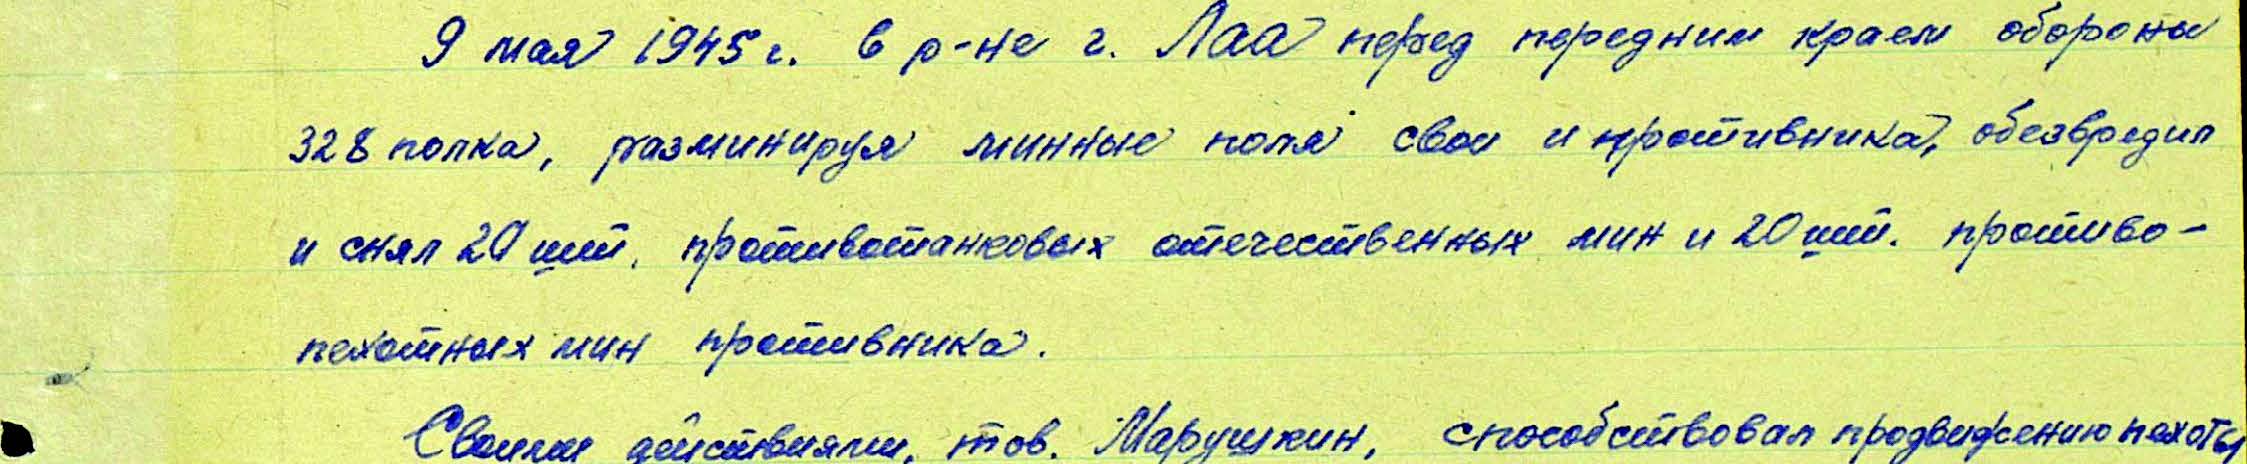 9 мая 1945 г. в р-не г. Лаа перед передним краем обороны
328 полка, разминируя минные поля свои и противника, обезвредил
и снял 20 шт. противотанковых отечественных мин и 20 шт. противо-
пехотных мин противника.
Своими действиями, тов. Марушкин, способствовал продвижению пехоты